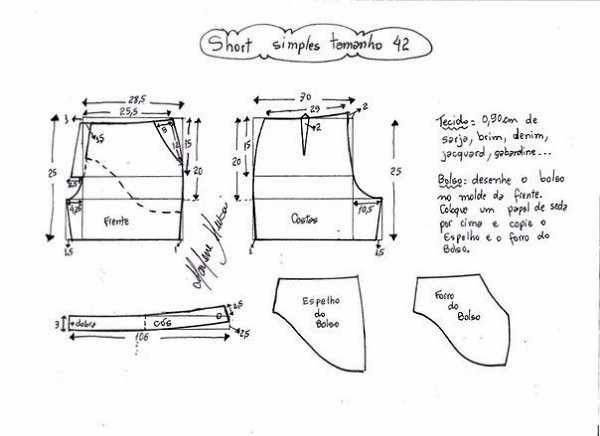 Short simples tamanho 42
28,5
25,5
3
3,5
8
12
15
20
25
2,5
4,5
1,5
1
Frente
30
29
2
2
15
20
25
10,5
1
1,5
Costas
Tecido: 0,90cm de
sarja, brim, denim,
jacquard, gabardine...
Bolso: desenhe o bolso
no molde da frente.
Coloque um papel de seda
por cima e copie o
Espelho e o forro do
Bolso.
3
dobra
cós
2,5
2,5
106
Espelho
do
Bolso
Forro
do
Bolso